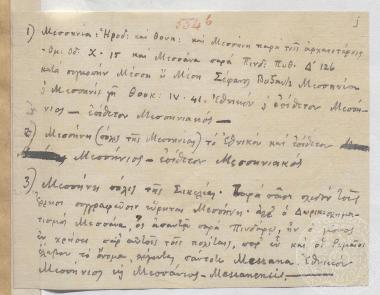 5346
1) Μεσσηνία: Ἡροδ: καὶ Θουκ: καὶ Μεσσήνη παρὰ τοῖς ἀρχαιοτέροις
- Ὁμ: Ὀδ: Χ. 15 καὶ Μεσσάνα παρὰ Πινδ: Πυθ. Δ' 126
κατὰ συγκοπὴν Μέσση ἢ Μέση Στέφανος Μεσσηνία
ἡ Μεσσηνὶς γῆ Θουκ: IV. 41. Ἐθνικὸν ἢ ἐπίθετον Μεσσή-
νιος - ἐπίθετον Μεσσηνιακός
2) Μεσσήνη (πόλις τῆς Μεσσηνίας) τὸ Ἐθνικὸν καὶ ἐπίθετον
Μεσσήνιος - ἐπίθετον Μεσσηνιακός
3) Μεσσήνη πόλις τῆς Σικελίας. Παρὰ πᾶσι σχεδὸν τοῖς
συγγραφεῦσι εὕρηται Μεσσήνη. ἀλλ' ὁ Δωρικὸς σχημα-
τισμὸς Μεσσάνα, ὡς ἀπαντᾷ παρὰ Πινδάρῳ, ἦν ὁ μόνος
ἐν χρήσει παρ' αὐτοῖς τοῖς πολίταις, παρ' ὧν καὶ οἱ Ῥωμαῖοι
ἔλαβον τὸ ὄνομα, Messana. Ἐθνικὸν
Μεσσήνιος ἢ Μεσσάνιος - Messanensis.